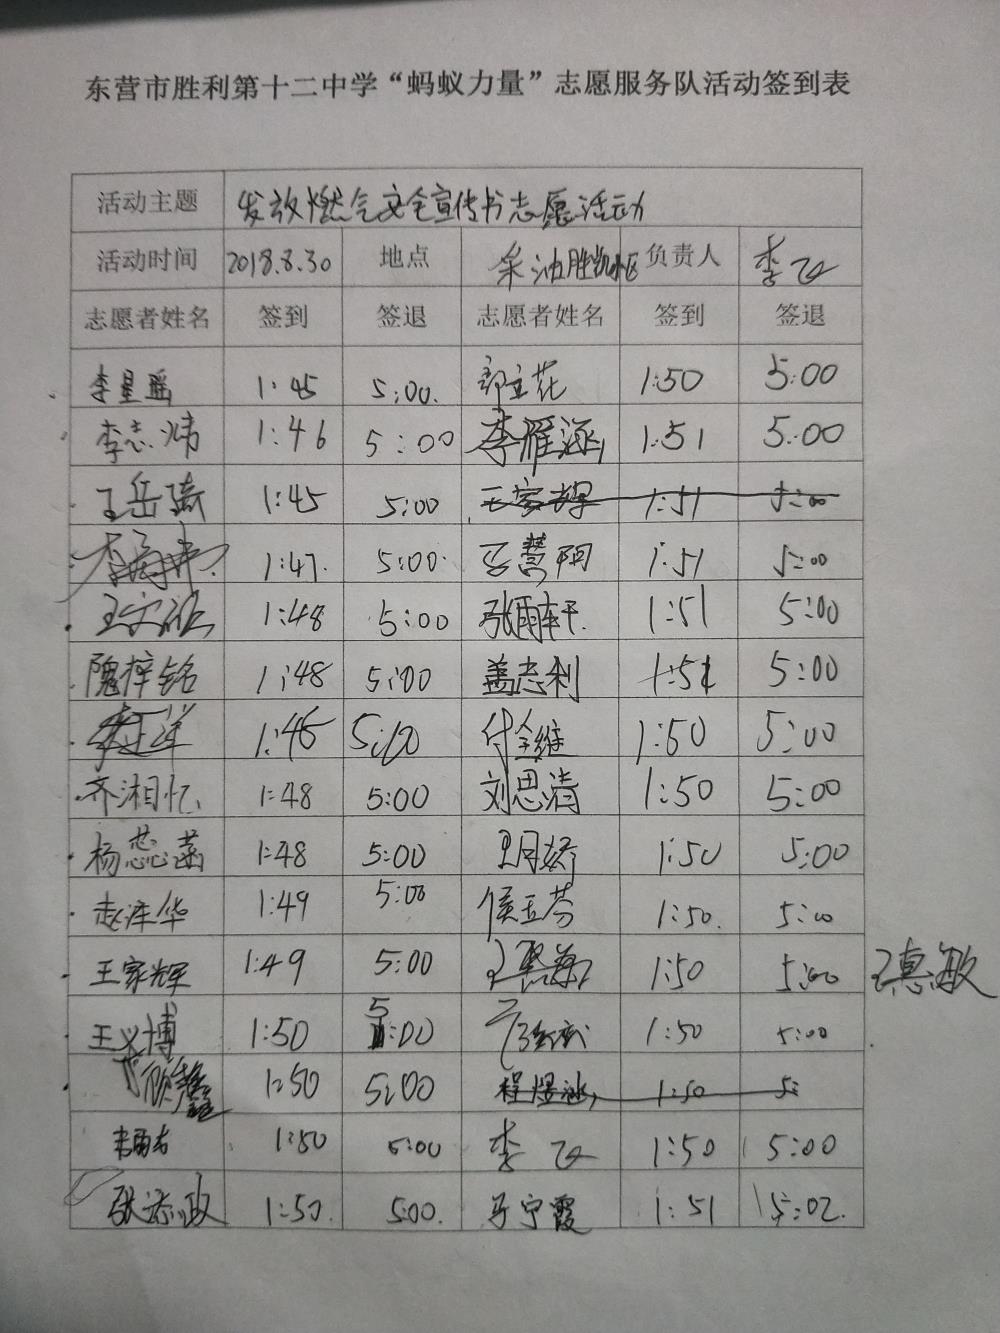 东营市胜利第十二中学“蚂蚁力量”志愿服务队活动签到表
活动主题 发放燃气安全宣传书志愿活动
活动时间 2018.8.30 地点 采油胜凯小区 负责人 李飞
志愿者姓名 签到 签退 志愿者姓名 签到 签退
李星瑶 1:45 5:00. 郭立花 1:50 5:00
李志炜 1:46 5:00 李雁涵 1:51 5:00
王岳琦 1:45 5:00 王家辉 1:51 5:00
1:47. 5:00 1:51 5:00
1:48 5:00 张雨轩 1:51 5:00
隗梓铭 1:48 5:00 盖志利 1:51 5:00
1:46 5:00 付全继 1:50 5:00
齐湘忆 1:48 5:00 刘思清 1:50 5:00
杨蕊菡 1:48 5:00 王月娇 1:50 5:00
赵泽华 1:49 5:00 侯玉芬 1:50. 5:00
王家辉 1:49 5:00 1:50 5:00 王惠敏
王义博 1:50 5:00 1:50 5:00
1:50 5:00 程煜涵 1:50 5:
1:50 5:00 李飞 1:50 5:00
张添政 1:50. 5:00. 马宁霞 1:51 5:02.